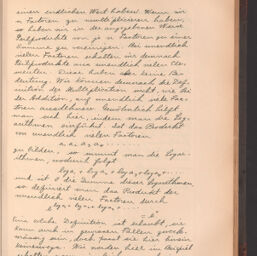 einen endlichen Wert haben. Wenn wir
n Factoren zu multiplicieren haben,
so haben wir in der angegebenen Weise
Teilproducte von je n Factoren zu einer
Summe zu vereinigen. Bei unendlich
vielen Factoren erhalten wir demnach
Teilproducte aus unendlich vielen Ele-
menten. Diese haben aber keine Be-
deutung. Wir können demnach die Def-
inition der Multiplication nicht, wie die
der Addition, auf unendlich viele Fac-
toren ausdehnen. Gewöhnlich hilft
man sich hier, indem man die Log-
arithmen einführt. Ist das Product
von unendlich vielen Factoren
a₁ a₂ a₃
zu bilden, so nimmt man die Logar-
ithmen, wodurch folgt
log a₁ + log a₂ + log a₃ +
und ist l die Summe dieser Logarithmen
so definiert man das Product der
unendlich vielen Factoren durch
e
Eine solche Definition ist erlaubt, sie
kann auch in gewissen Fällen zweck-
mässig sein, doch passt sie hier
keineswegs. Wir werden hier im Beispiel